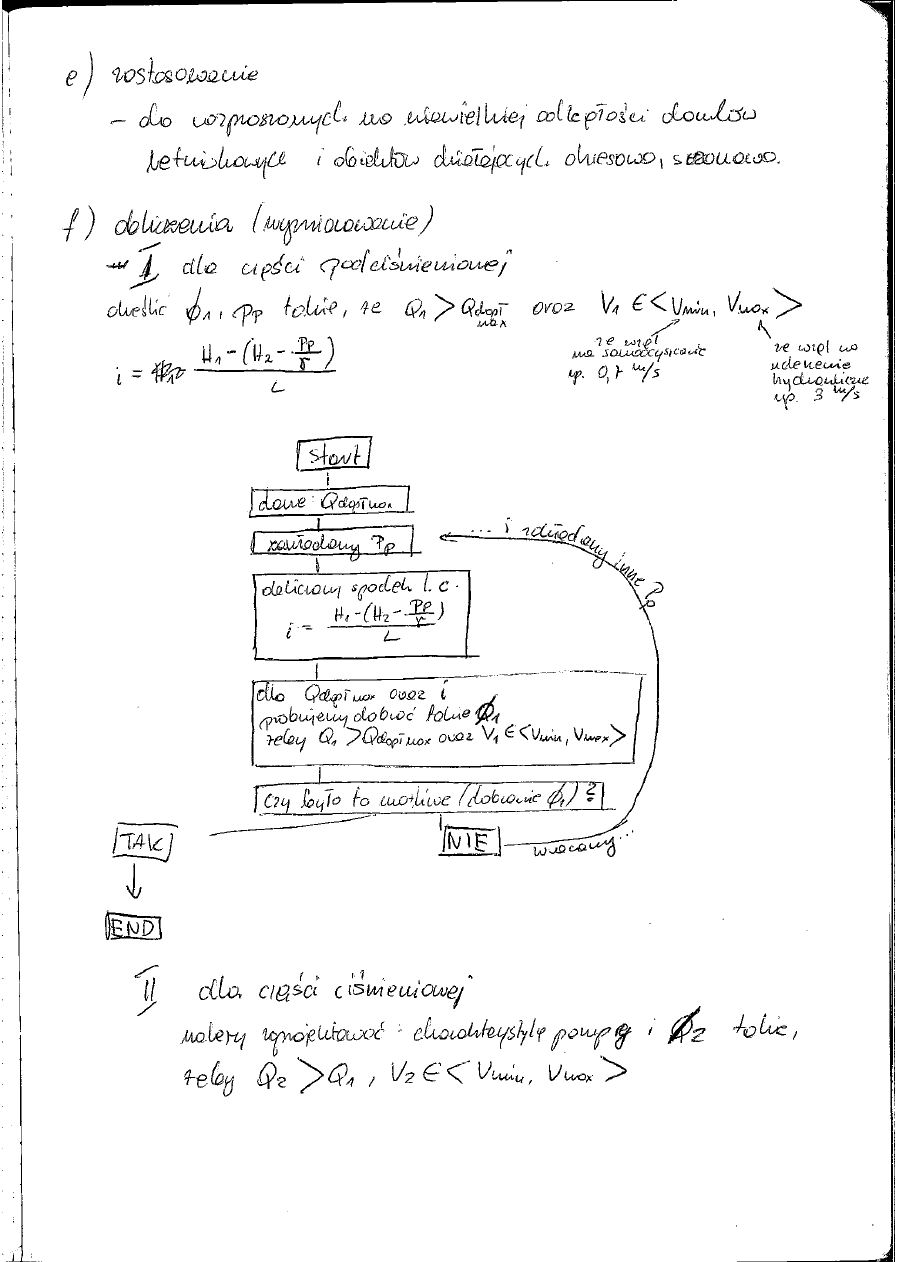 e) zastosowanie
- do rozproszonych na niewielkiej odległości domków
letniskowych i obiektów działających okresowo, sezonowo.
f) obliczenia (wymiarowanie)
I dla części podciśnieniowej
określić ϕ1, Pp takie, że Q1 > Qdopł max oraz V1 ∈ <Vmin, Vmax>
ze wzgl na samooczyszczanie np. 0,7 m/s
ze wzgl na uderzenie hydrauliczne np. 3 m/s
i = (H1-(H2-Pp/γ))/L
Start
dane: Qdopł max
zakładamy Pp
obliczamy spadek l.c.
i = (H1-(H2-Pp/γ))/L
dla Qdopł max oraz i
próbujemy dobrać takie ϕ1
żeby Q1 > Qdopł max oraz V1 ∈ <Vmin, Vmax>
Czy było to możliwe (dobranie ϕ1)?
TAK
NIE
wracamy...
... i zakładamy inne Pp
END
II dla części ciśnieniowej
należy zaprojektować charakterystykę pompy i ϕ2 takie,
żeby Q2 > Q1, V2 ∈ <Vmin, Vmax>